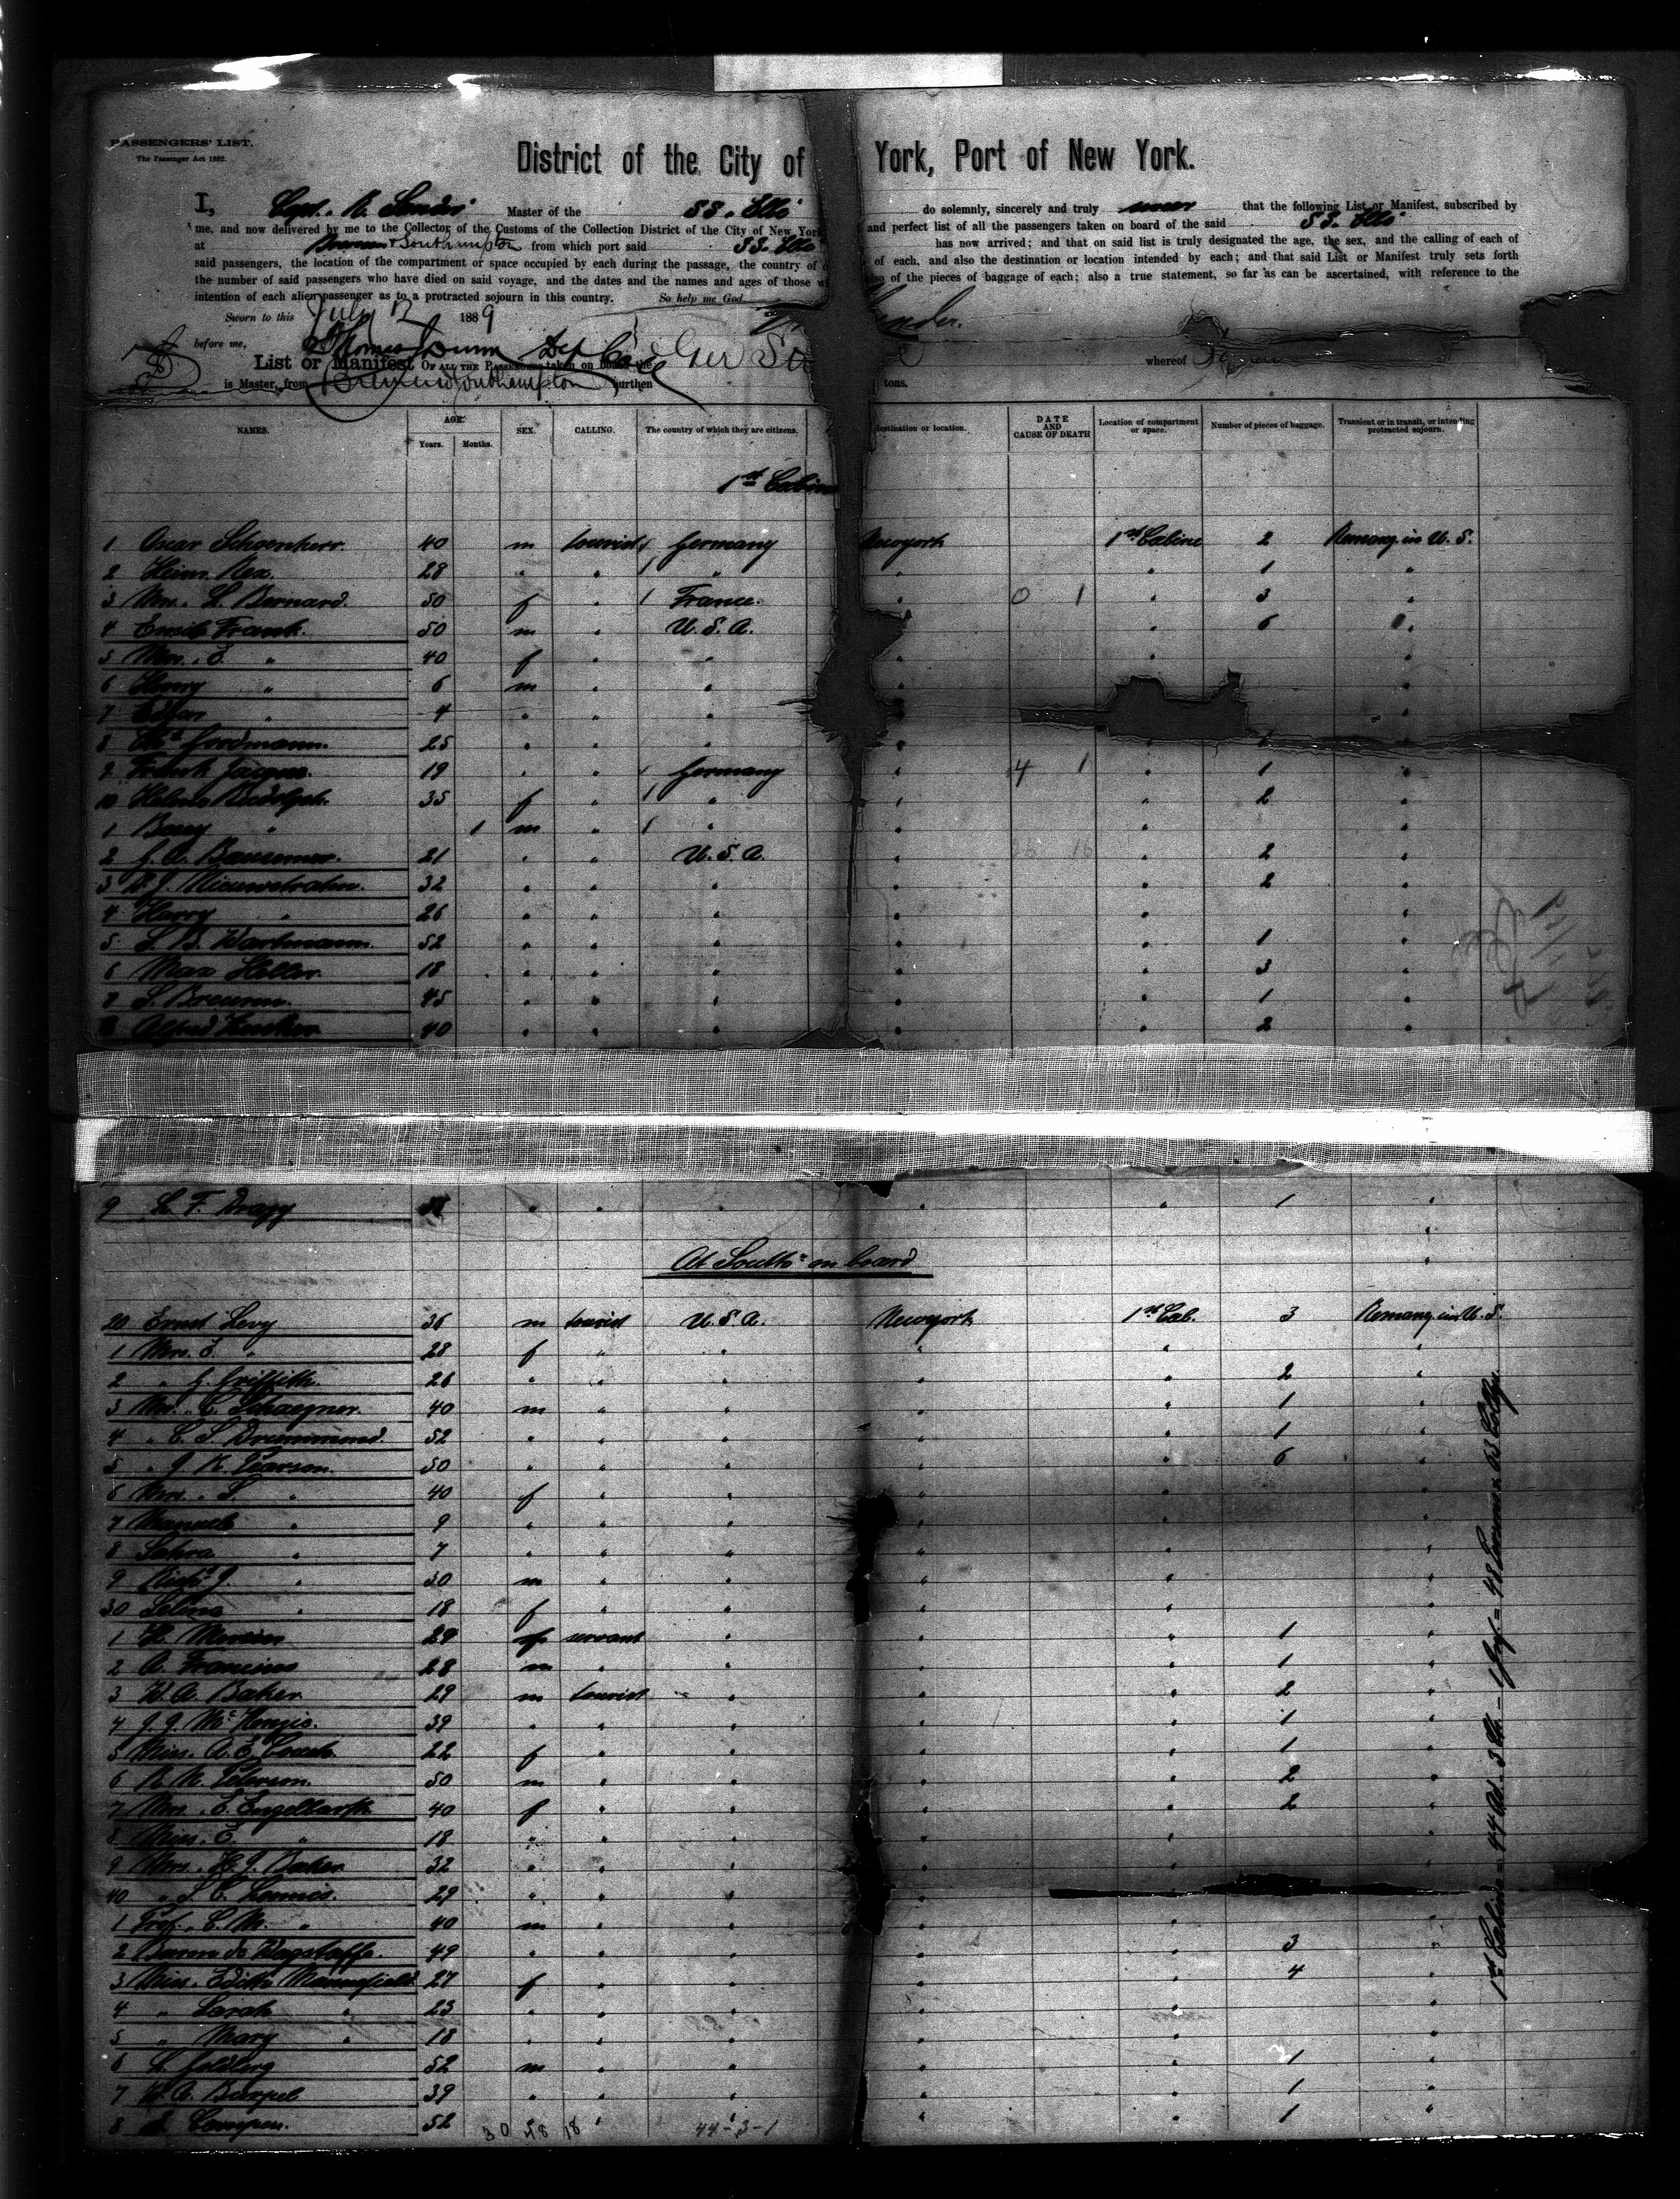 PASSENGERS' LIST.
The Passenger Act 1882.
District of the City of York, Port of New York.
I, Capt. R. Sander Master of the SS. Elbe do solemnly, sincerely and truly swear that the following List or Manifest, subscribed by
me, and now delivered by me to the Collector of the Customs of the Collection District of the City of New York and perfect list of all the passengers taken on board of the said SS. Elbe
at Bremen & Southampton from which port said SS. Elbe has now arrived; and that on said list is truly designated the age, the sex, and the calling of each of
said passengers, the location of the compartment or space occupied by each during the passage, the country of of each, and also the destination or location intended by each; and that said List or Manifest truly sets forth
the number of said passengers who have died on said voyage, and the dates and the names and ages of those of the pieces of baggage of each; also a true statement, so far as can be ascertained, with reference to the
intention of each alien passenger as to a protracted sojourn in this country. So help me God.
Sworn to this July 12 1889
before me, Thomas Dunn Dep Col
List or Manifest OF ALL THE PASSENGERS taken on board the Ger SS whereof
is Master, from Bremen Southampton burthen tons.
NAMES. AGE. Years. Months. SEX. CALLING. The country of which they are citizens. destination or location. DATE AND CAUSE OF DEATH Location of compartment or space. Number of pieces of baggage. Transient or in transit, or intending protracted sojourn.
1st Cabine
1 Oscar Schoenherr. 40 m tourist 1 Germany Newyork 1st Cabine 2 Remang. in U. S.
2 Heinr. Rex. 28 " " 1 " " " 1 "
3 Mrs. L. Bernard. 50 f " 1 France. " 0 1 " 3 "
4 Emile Frank. 50 m " U. S. A. " 6 "
5 Mrs. E. " 40 f " " " " "
6 Henry " 6 m " " " " "
7 Edgar " 4 " " " " "
8 Goodmann. 25 " " " " " "
9 Frank Jacques. 19 " " 1 Germany " 4 1 " 1 "
10 Helene Rudolph. 35 f " 1 " " " 2 "
1 " 1 m " 1 " " " "
2 G. A. Bausemer. 21 " " U. S. A. " 26 16 " 2 "
3 32 " " " " " 2 "
4 Harry " 26 " " " " " "
5 S. B. Wartmann. 52 " " " " " 1 "
6 Max Heller. 18 " " " " " 3 "
7 S. Breunn. 45 " " " " " 1 "
8 Alfred 40 " " " " " 2 "
9 L. F. " " " " " 1 "
At South'n on board
20 Ernst Levy 36 m tourist U. S. A. Newyork 1st Cab. 3 Remang. in U. S.
1 Mrs. E. " 28 f " " " " "
2 " G. Griffith. 26 " " " " " 2 "
3 Mr. C. Schaegner. 40 m " " " " 1 "
4 " C. S. Drummond. 52 " " " " " 1 "
5 " J. R. Pearson. 50 " " " " " 6 "
6 Mrs. S. " 40 f " " " " "
7 Manuele " 9 " " " " " "
8 Sahra " 7 " " " " " "
9 Rich. J. " 30 m " " " " "
30 Selma " 18 f " " " " "
1 H. 29 f servant " " " 1 "
2 A. Francius 28 m " " " " 1 "
3 W. A. Baker 29 m tourist " " " 2 "
4 J. J. McKenzie. 39 " " " " " 1 "
5 Miss. A. E. Couch. 22 f " " " " 1 "
6 R. R. Peterson. 50 m " " " " 2 "
7 Mrs. E. Engelbarth 40 f " " " " 2 "
8 Miss. E. " 18 " " " " " "
9 Mrs. H. J. Baker 32 " " " " " "
40 " S. C. Loomis. 29 " " " " " "
1 Prof. C. M. " 40 m " " " " "
2 Baron de Wagstaffe. 49 " " " " " 3 "
3 Miss. Edith Mannsfield 27 f " " " " 4 "
4 " Sarah " 23 " " " " " "
5 " Mary " 18 " " " " " "
6 L. Goldberg 52 m " " " " 1 "
7 W. A. Burpel 39 " " " " " 1 "
8 S. Campen. 52 " " " " 1 "
30 48 18 44-3-1
1st Cabine = 44 Ad. - 3 Ch. - 1 Inf. = 48 Personen 63 Collys.